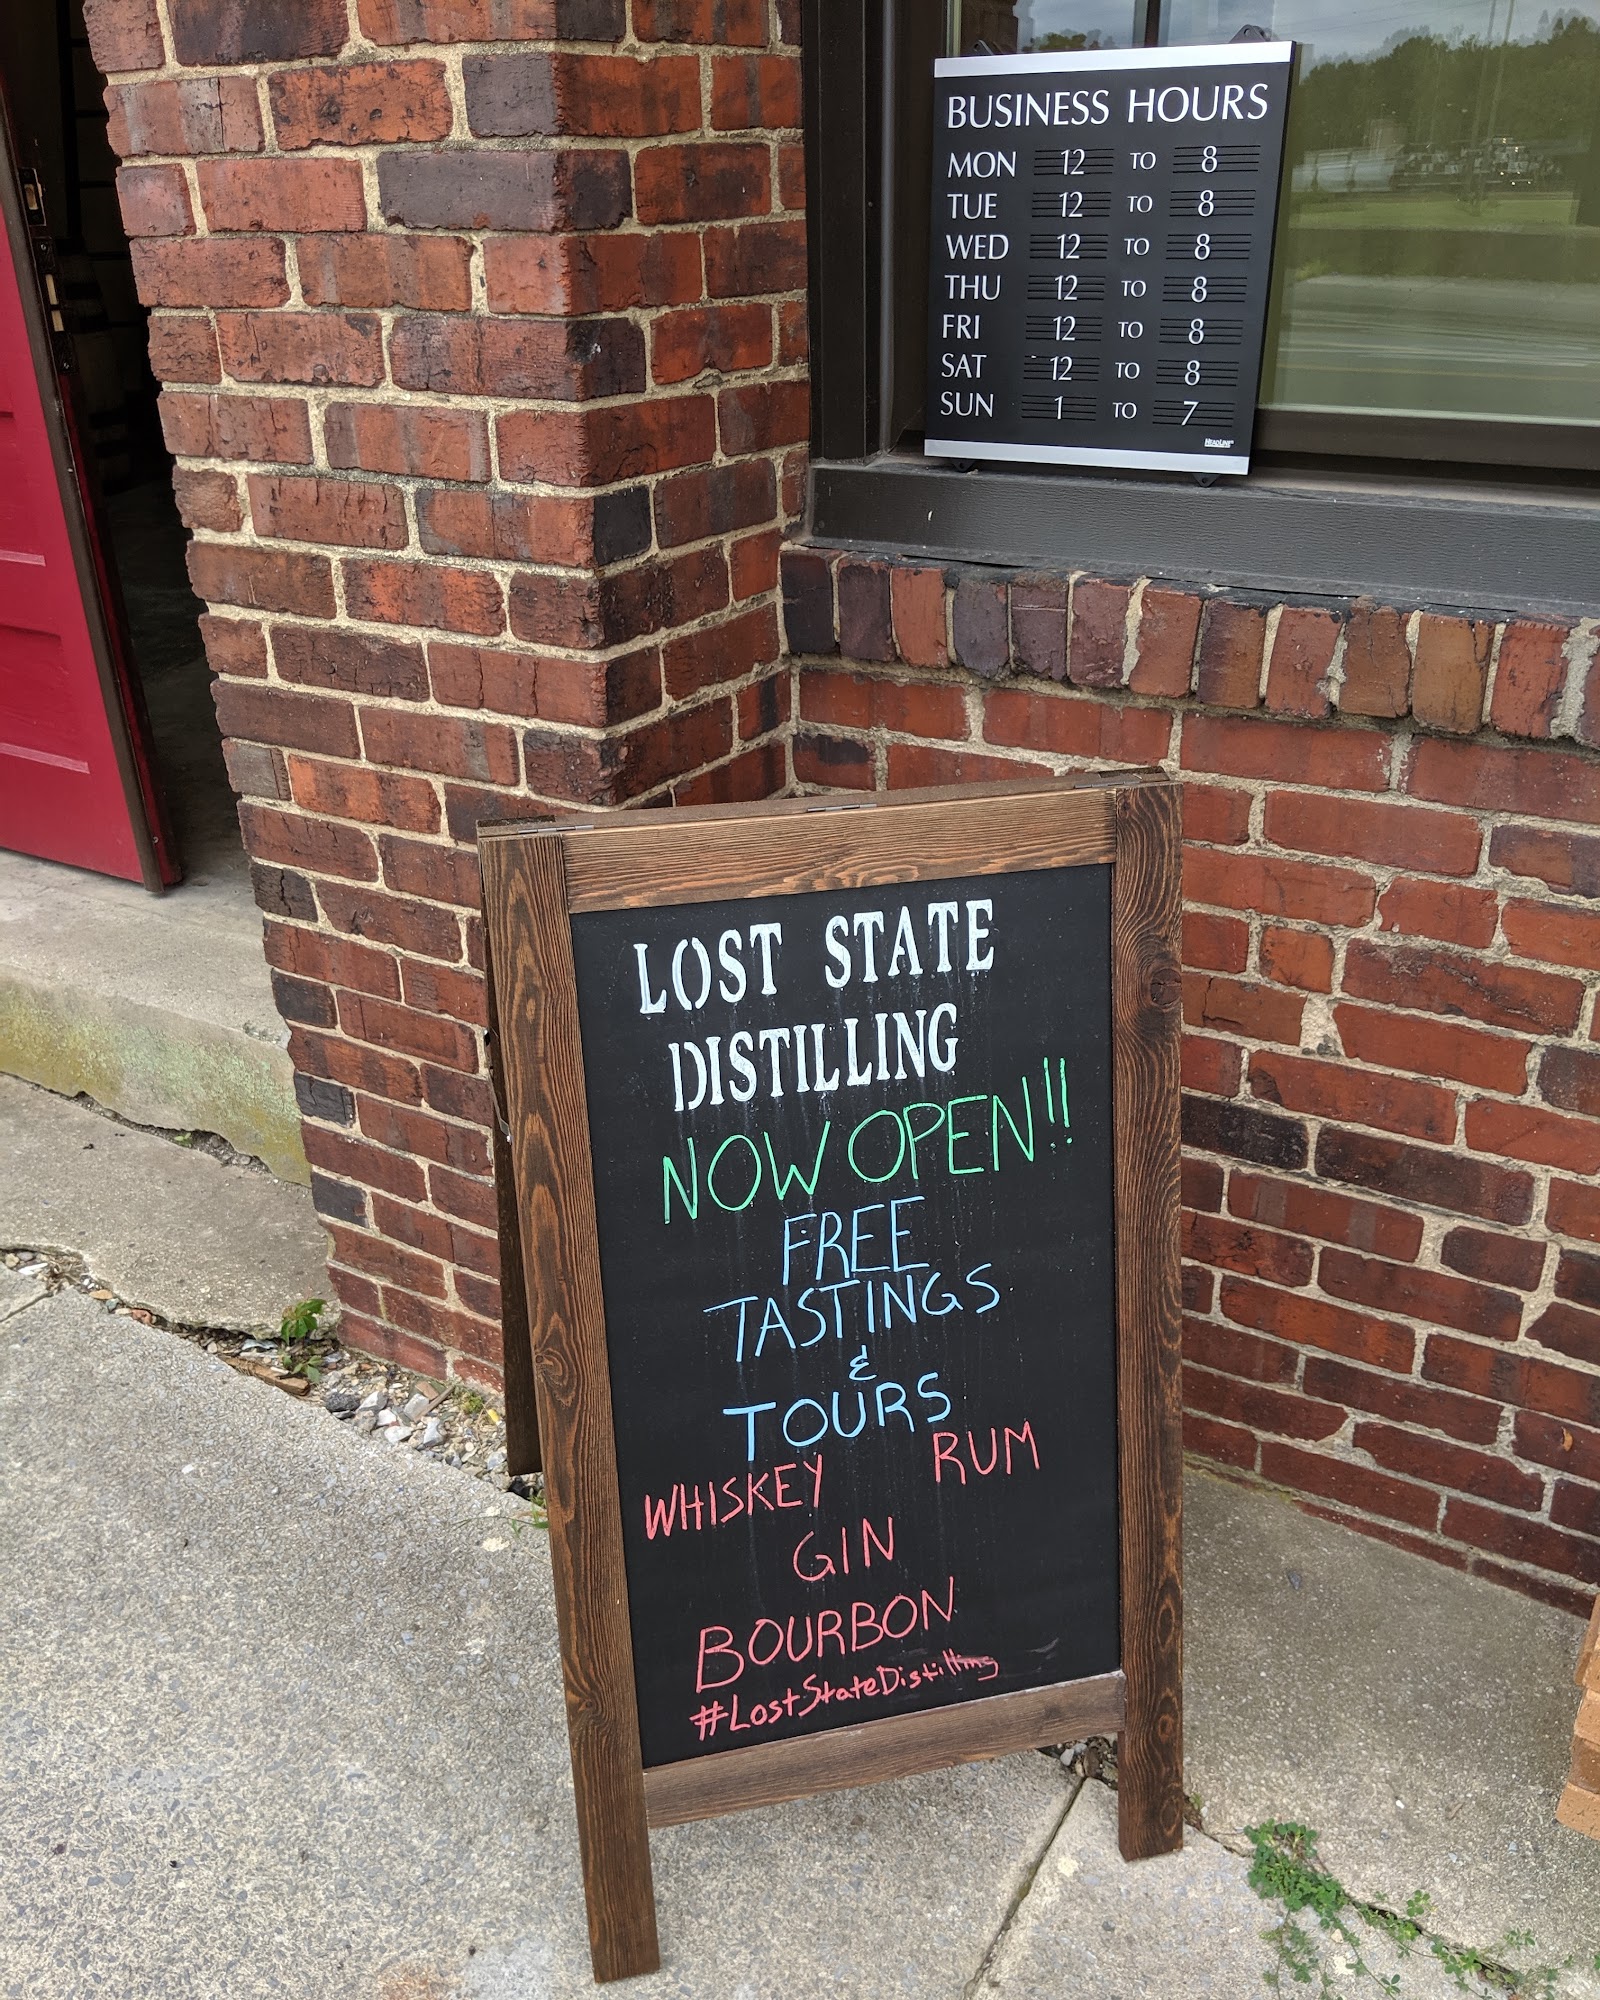 BUSINESS HOURS
MON 12 TO 8
TUE 12 TO 8
WED 12 TO 8
THU 12 TO 8
FRI 12 TO 8
SAT 12 TO 8
SUN 1 TO 7
HEADLINE
LOST STATE
DISTILLING
NOW OPEN!!
FREE
TASTINGS
&
TOURS
WHISKEY RUM
GIN
BOURBON
#LostStateDistilling